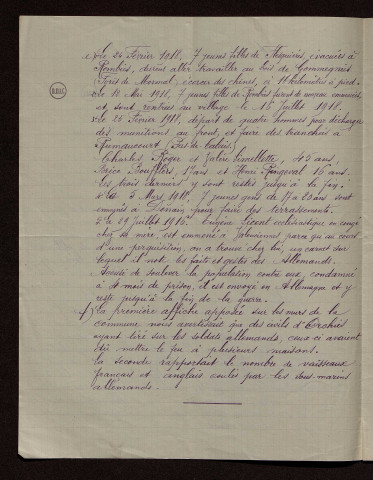 e) Le 25 Février 1918, 7 jeunes filles de Flequières, évacuées à
Rombies, durent aller travailler au bois de Gommegnies
(Forêt de Mormal), écorcer des chênes, à 11 kilomètres à pied.
Le 10 Mai 1918, 7 jeunes filles de Rombies furent de nouveau emmenées
et sont rentrées au village le 15 Juillet 1918.
Le 26 Février 1918, départ de quatre hommes pour décharger
des munitions au front, et faire des tranchées à
(Pas-de-Calais)
Charles Roger, et Jules Limellette, 45 ans,
Brice Boufflers, 17 ans et Henri 16 ans.
Les trois derniers y sont restés jusqu'à la fin.
5 Mars 1918, 7 jeunes gens de 17 à 20 ans sont
envoyés à Denain, pour faire des terrassements.
29 Juillet 1918 Eugène ecclésiastique en congé
chez sa mère, est emmené à Valenciennes parce qu'au cours
d'une perquisition, on a trouvé chez lui, un carnet sur
lequel il note les faits et gestes des Allemands.
Accusé de soulever la population contre eux, condamné
à 4 mois de prison, il est envoyé en Allemagne et y
reste jusqu'à la fin de la guerre.
f) La première affiche apposée sur les murs de la
commune nous avertissait que des civils d'Orchies
ayant tiré sur les soldats allemands, ceux-ci avaient
dû mettre le feu à plusieurs maisons.
La seconde rapportait le nombre de vaisseaux
français et anglais coulés par les sous-marins
allemands.